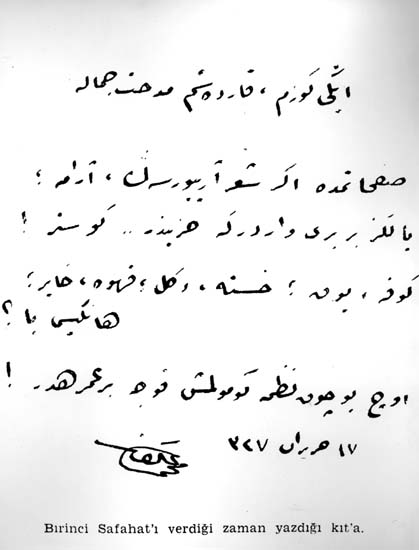 ایكی كوزم ، قاردەشم مدحت جماله
صفحاتمده اكر شعر آرییورسەڭ ، آرامه ؛
یالكز بر یری واردر كه حزیندر .. كوستر !
كوفه ، یوق ؛ خسته ، دكل ؛ قهوه ، خایر ؛
هانكیسی یا ؟
اوچ بوچوق نظمه كومولمش قوجه بر عمر هدر !
١٧ حزیران ٣٢٧
محمد عاكف
Birinci Safahat'ı verdiği zaman yazdığı kıt'a.